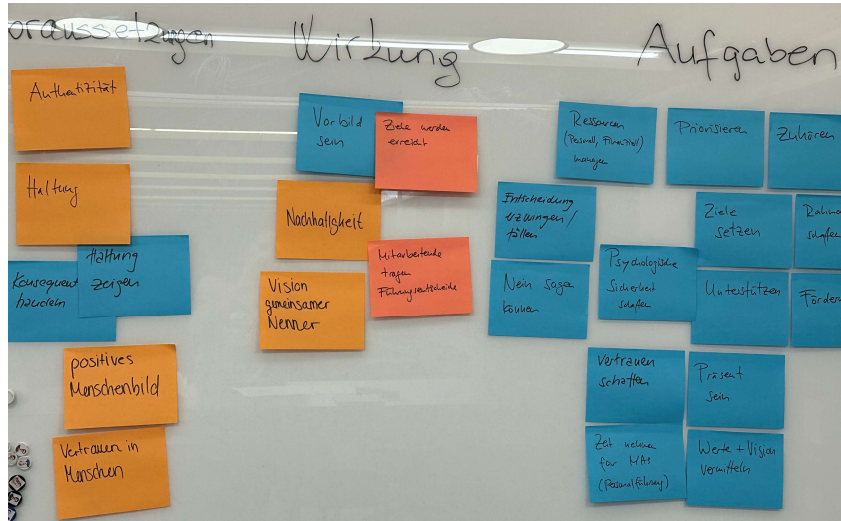 oraussetzungen
Authentizität
Haltung
Haltung
zeigen
Konsequent
handeln
positives
Menschenbild
Vertrauen in
Menschen
Wirkung
Vorbild
sein
Ziele werden
erreicht
Nachhaltigkeit
Mitarbeitende
tragen
Führungsentscheide
Vision
gemeinsamer
Nenner
Aufgaben
Ressourcen
(Personell, Finanziell)
managen
Priorisieren
Zuhören
Entscheidung
erzwingen /
fällen
Ziele
setzen
Rahme
schaffen
Psychologische
Sicherheit
schaffen
Nein sagen
können
Unterstützen
Fördern
Vertrauen
schaffen
Präsent
sein
Zeit nehmen
für MA's
(Personalführung)
Werte + Vision
vermitteln